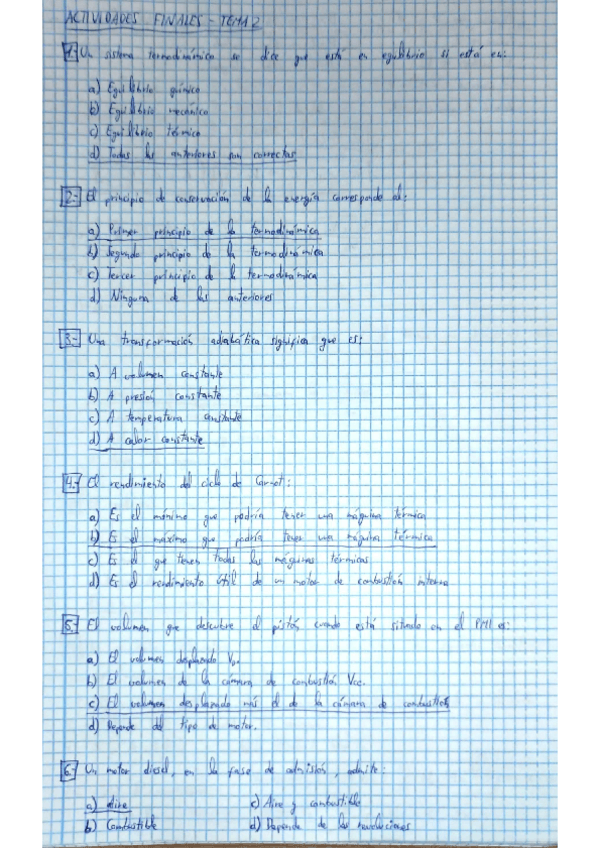 ACTIVIDADES FINALES - TEMA 2
1.- Un sistema termodinámico se dice que está en equilibrio si está en:
a) Equilibrio químico
b) Equilibrio mecánico
c) Equilibrio térmico
d) Todas las anteriores son correctas
2.- El principio de conservación de la energía corresponde al:
a) Primer principio de la termodinámica
b) Segundo principio de la termodinámica
c) Tercer principio de la termodinámica
d) Ninguna de las anteriores
3.- Una transformación adiabática significa que es:
a) A volumen constante
b) A presión constante
c) A temperatura constante
d) A calor constante
4.- El rendimiento del ciclo de Carnot:
a) Es el mínimo que podría tener una máquina térmica
b) Es el máximo que podría tener una máquina térmica
c) Es el que tienen todas las máquinas térmicas
d) Es el rendimiento útil de un motor de combustión interna
5.- El volumen que descubre el pistón cuando está situado en el PMI es:
a) El volumen desplazado
b) El volumen de la cámara de combustión Vcc.
c) El volumen desplazado más el de la cámara de combustión
d) Depende del tipo de motor.
6.- Un motor diesel, en la fase de admisión, admite:
a) Aire c) Aire y combustible
b) Combustible d) Depende de las revoluciones